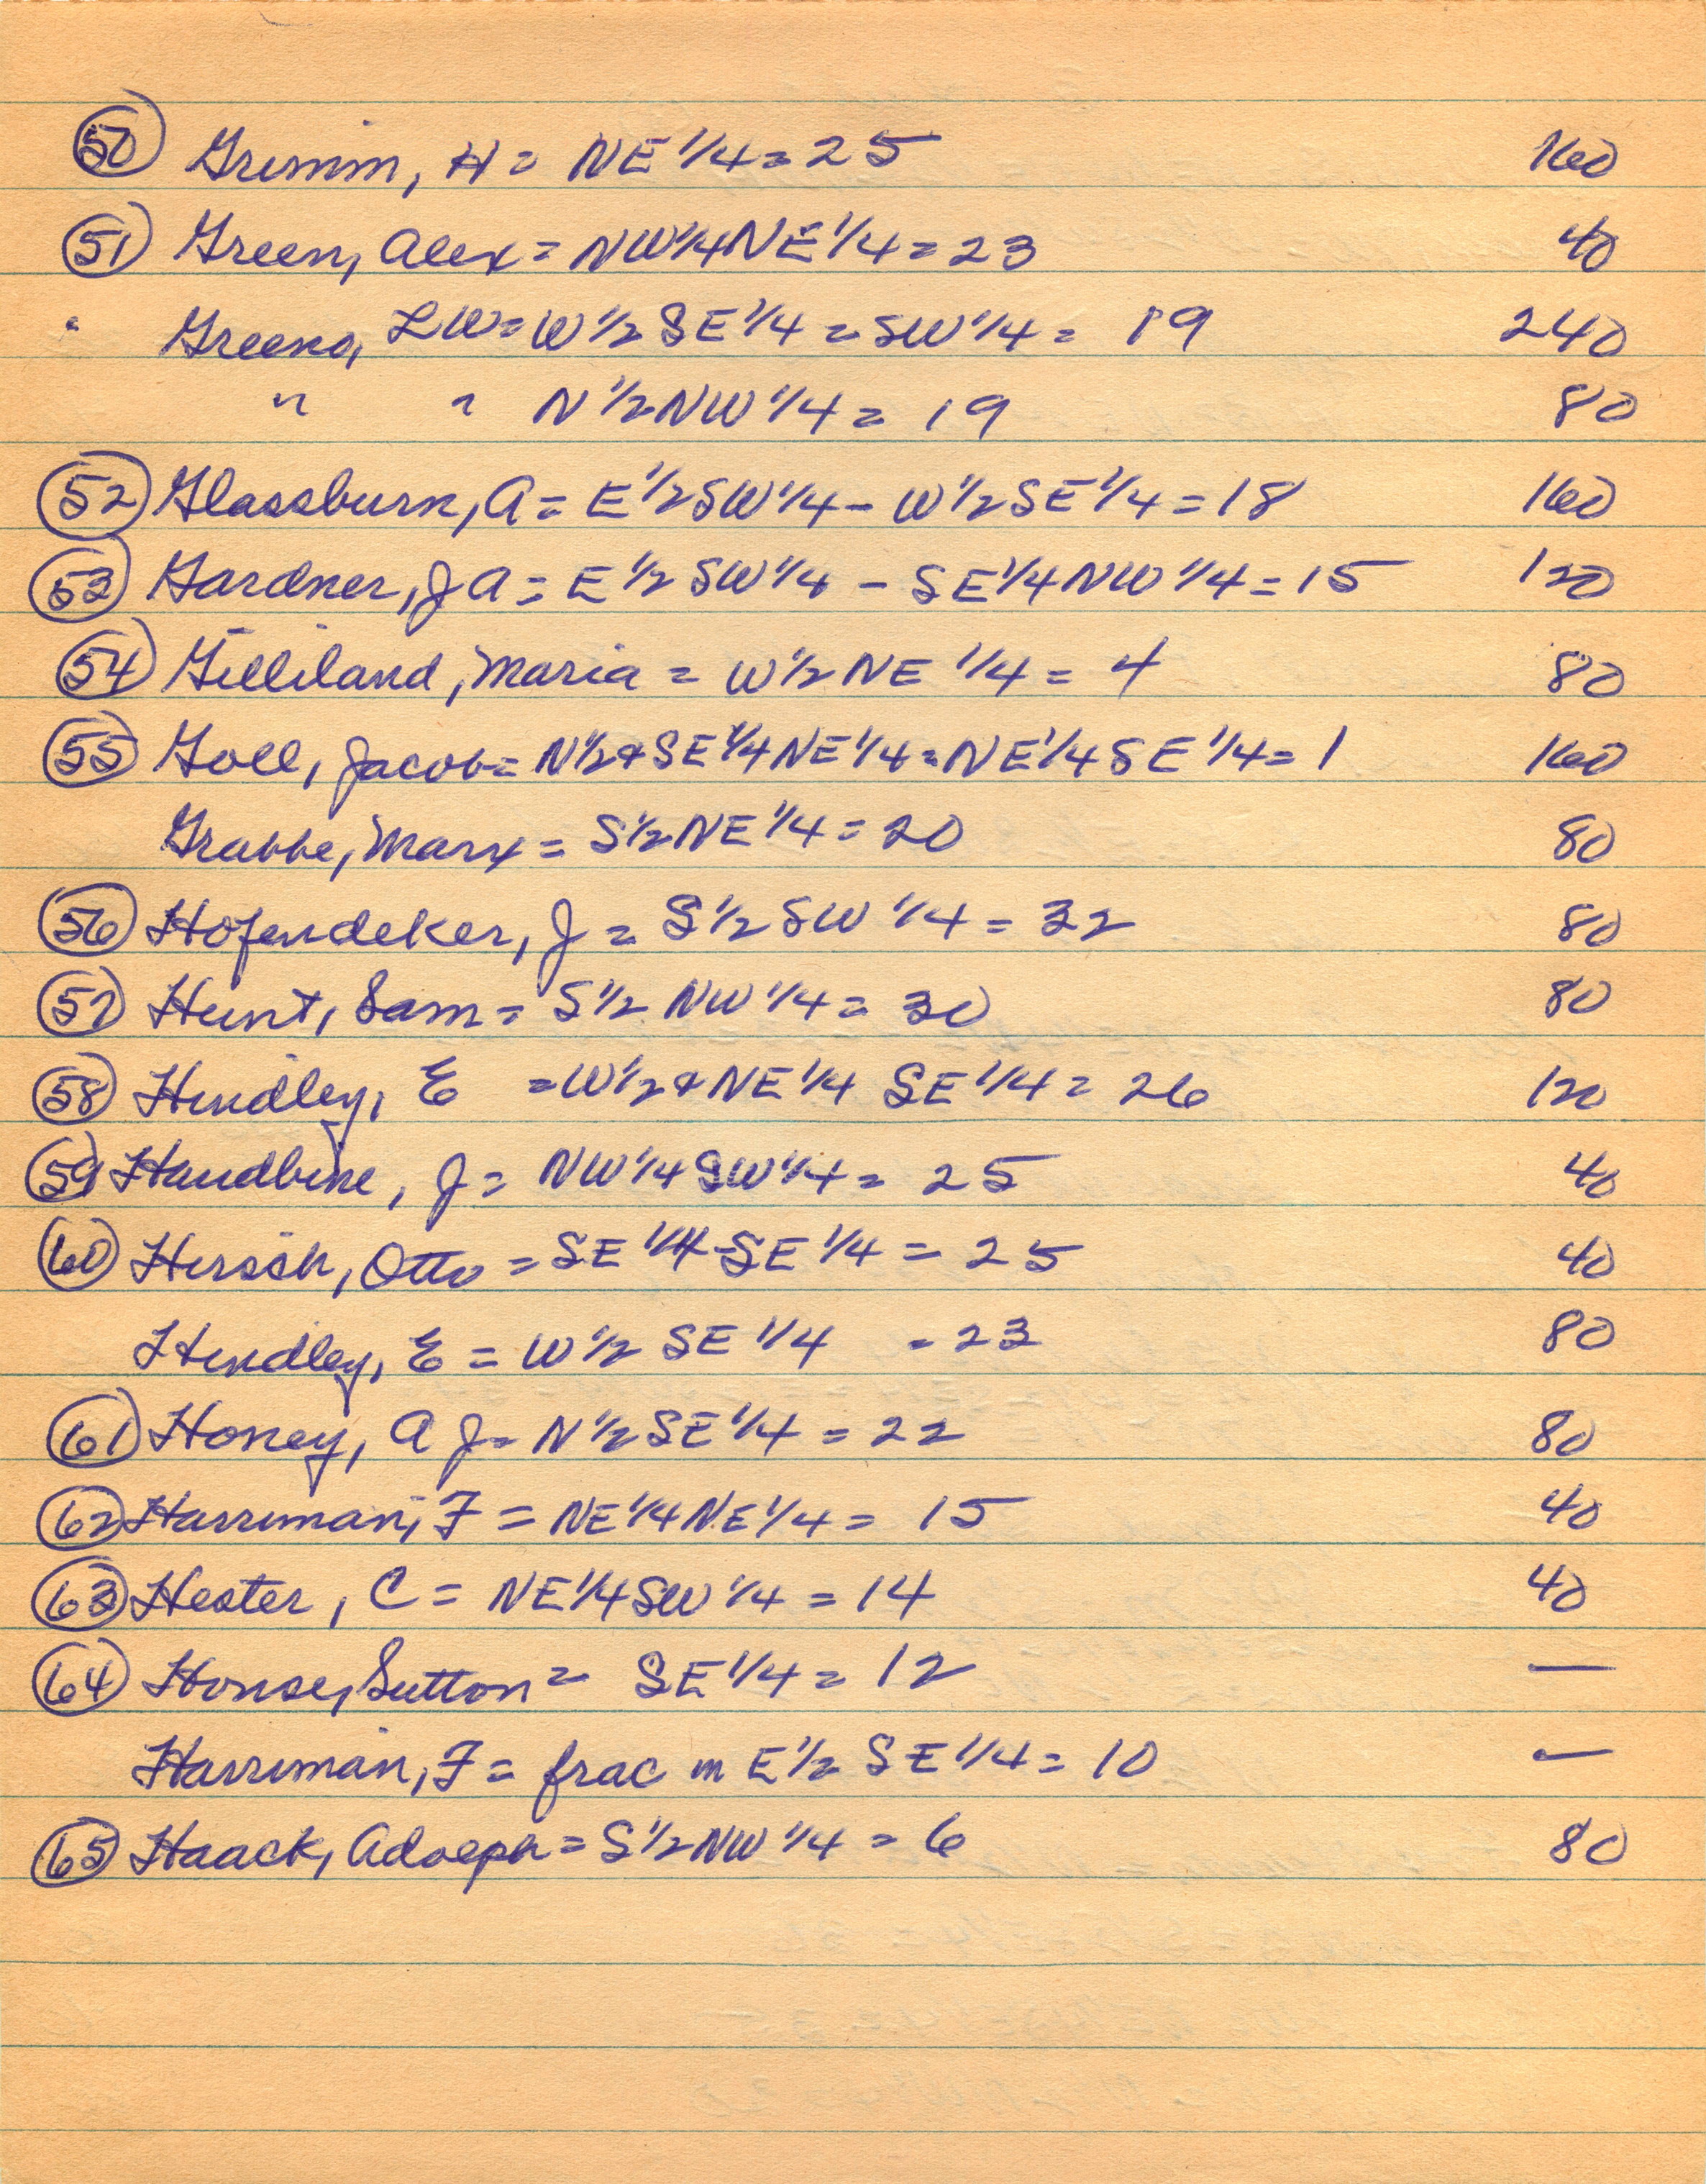 50 Grimm, H = NE 1/4 = 25 160
51 Green, Alex = NW 1/4 NE 1/4 = 23 40
" Greeno, L W = W 1/2 SE 1/4 = SW 1/4 = 19 240
" " N 1/2 NW 1/4 = 19 80
52 Glassburn, A = E 1/2 SW 1/4 - W 1/2 SE 1/4 = 18 160
53 Gardner, J A = E 1/2 SW 1/4 - SE 1/4 NW 1/4 = 15 120
54 Gilliland, Maria = W 1/2 NE 1/4 = 4 80
55 Goll, Jacob = N 1/2 & SE 1/4 NE 1/4 = NE 1/4 SE 1/4 = 1 160
Grabbe, Marx = S 1/2 NE 1/4 = 20 80
56 Hofendeker, J = S 1/2 SW 1/4 = 32 80
57 Hunt, Sam = S 1/2 NW 1/4 = 30 80
58 Hindley, E = W 1/2 & NE 1/4 SE 1/4 = 26 120
59 Handbine, J = NW 1/4 SW 1/4 = 25 40
60 Hirsch, Otto = SE 1/4 - SE 1/4 = 25 40
Hindley, E = W 1/2 SE 1/4 = 23 80
61 Honey, A J = N 1/2 SE 1/4 = 22 80
62 Harriman, F = NE 1/4 NE 1/4 = 15 40
63 Hester, C = NE 1/4 SW 1/4 = 14 40
64 House, Sutton = SE 1/4 = 12 —
Harriman, F = frac in E 1/2 SE 1/4 = 10 —
65 Haack, Adolph = S 1/2 NW 1/4 = 6 80